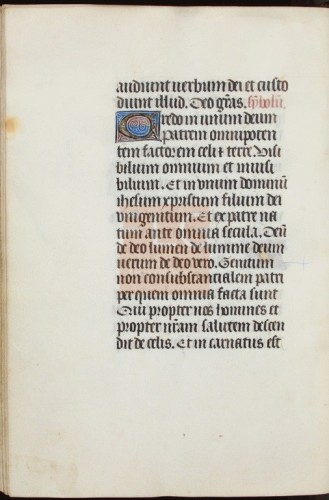 audiunt verbum dei et custo
diunt illud. Deo grãs. Sỹbolũ.
Credo in unum deum
Patrem omnipoten
tem factorem celi ⁊ terre. Visi
bilium omnium et invisi
bilium. Et in unum dominũ
ihesum xpristum filium dei
unigenitum. Et ex patre na
tum ante omnia secula. Deũ
de deo lumen de lumine deum
verum de deo vero. Genitum
non consubstancialem patri
per quem omnia facta sunt
Qui propter nos homines et
propter nr̃am salutem descen
dit de celis. Et in carnatus est